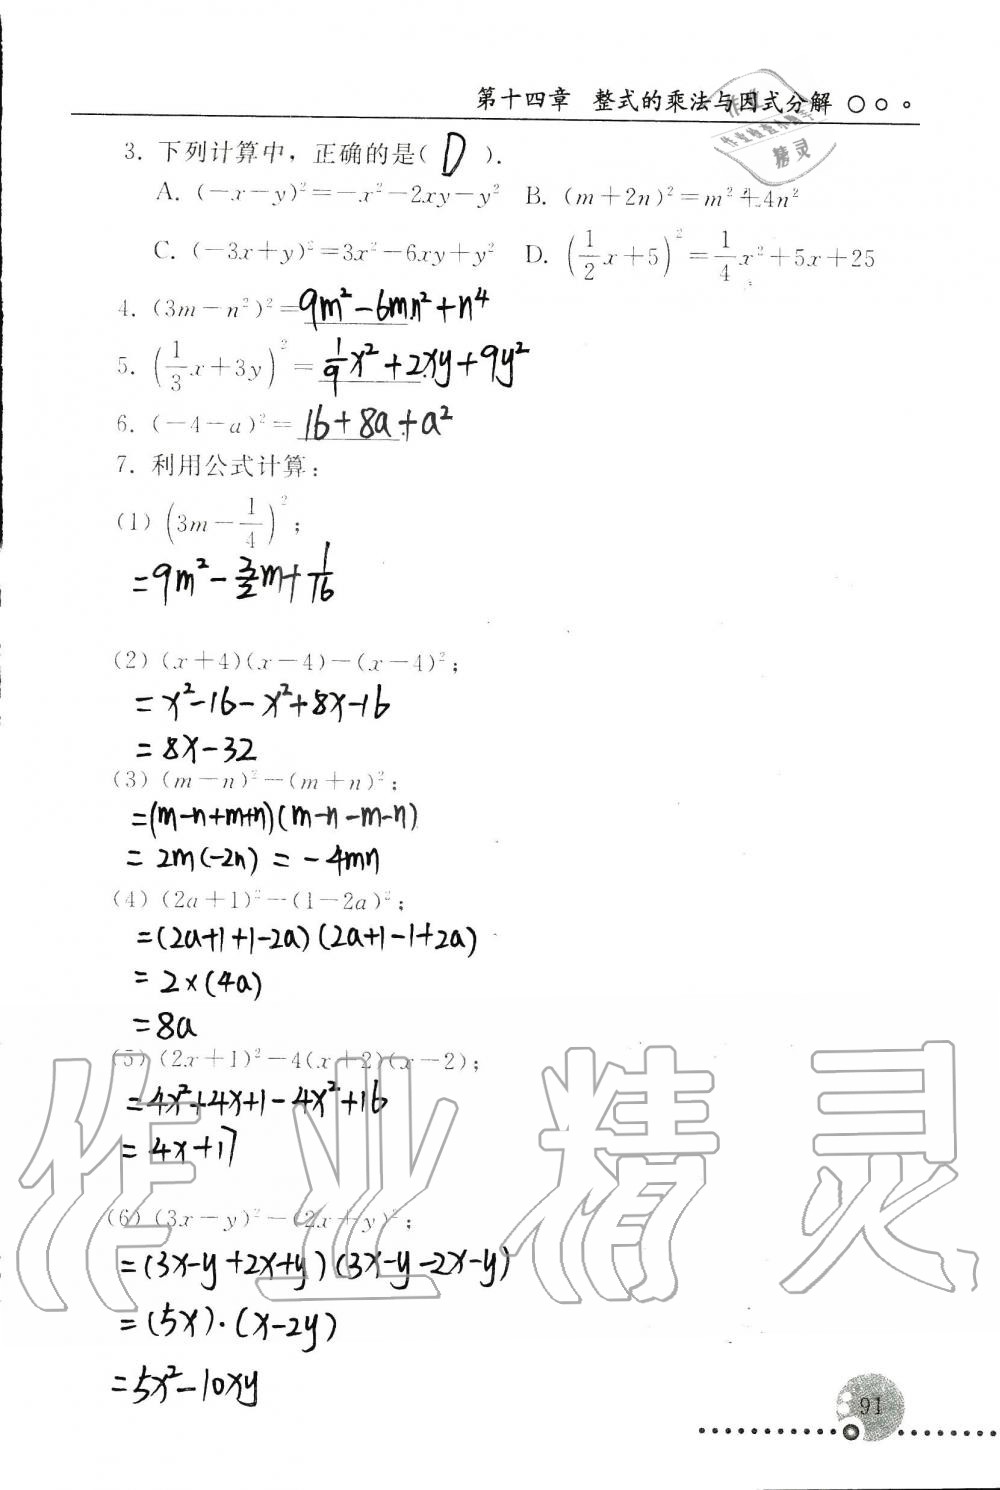 第十四章 整式的乘法与因式分解
作业
作业检查小助手
精灵
3. 下列计算中，正确的是( D ).
A. (－x－y)²＝－x²－2xy－y² B. (m＋2n)²＝m²＋4n²
C. (－3x＋y)²＝3x²－6xy＋y² D. (1/2 x＋5)²＝1/4 x²＋5x＋25
4. (3m－n²)²＝9m²－6mn²＋n⁴
5. (1/3 x＋3y)²＝1/9 x²＋2xy＋9y²
6. (－4－a)²＝16＋8a＋a²
7. 利用公式计算：
(1) (3m－1/4)²；
=9m²－3/2 m＋1/16
(2) (x＋4)(x－4)－(x－4)²；
=x²－16－x²＋8x－16
=8x－32
(3) (m－n)²－(m＋n)²；
=(m－n＋m＋n)(m－n－m－n)
=2m(－2n)=－4mn
(4) (2a＋1)²－(1－2a)²；
=(2a＋1＋1－2a)(2a＋1－1＋2a)
=2×(4a)
=8a
(5) (2x＋1)²－4(x＋2)(x－2)；
=4x²＋4x＋1－4x²＋16
=4x＋17
作业精灵
(6) (3x－y)²－(2x＋y)²；
=(3x－y＋2x＋y)(3x－y－2x－y)
=(5x)·(x－2y)
=5x²－10xy
91